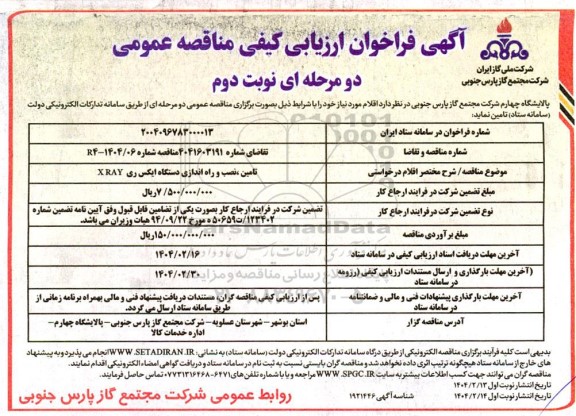 آگهی فراخوان ارزیابی کیفی مناقصه عمومی
دو مرحله ای نوبت دوم
شرکت ملی گاز ایران
شرکت مجتمع گاز پارس جنوبی
پالایشگاه چهارم شرکت مجتمع گاز پارس جنوبی در نظر دارد اقلام مورد نیاز خود را با شرایط ذیل بصورت برگزاری مناقصه عمومی دو مرحله ای از طریق سامانه تدارکات الکترونیکی دولت
(سامانه ستاد) تامین نماید:
شماره فراخوان در سامانه ستاد ایران
۲۰۰۴۰۹۶۷۸۳۰۰۰۰۱۳
شماره مناقصه و تقاضا
تقاضای شماره ۴۰۴۱۶۰۳۱۹۱ مناقصه شماره R۴-۱۴۰۴/۰۶
موضوع مناقصه / شرح مختصر اقلام درخواستی
تامین، نصب و راه اندازی دستگاه ایکس ری X RAY
مبلغ تضمین شرکت در فرایند ارجاع کار
۷/۵۰۰/۰۰۰/۰۰۰ریال
نوع تضمین شرکت در فرایند ارجاع کار
تضمین شرکت در فرایند ارجاع کار بصورت یکی از تضامین قابل قبول وفق آیین نامه تضمین شماره
۱۲۳۴۰۲/ت۵۰۶۵۹ه مورخ ۹۴/۰۹/۲۲ هیات وزیران می باشد.
مبلغ برآوردی مناقصه
۱۵۰/۰۰۰/۰۰۰/۰۰۰ریال
آخرین مهلت دریافت اسناد ارزیابی کیفی در سامانه ستاد
۱۴۰۴/۰۲/۱۶
آخرین مهلت بارگذاری و ارسال مستندات ارزیابی کیفی (رزومه)
در سامانه ستاد
۱۴۰۴/۰۲/۳۰
آخرین مهلت بارگذاری پیشنهادات فنی و مالی و ضمانتنامه
در سامانه ستاد
پس از ارزیابی کیفی مناقصه گران، مستندات دریافت پیشنهاد فنی و مالی بهمراه برنامه زمانی از
طریق سامانه ستاد ارسال می گردد.
آدرس مناقصه گزار
استان بوشهر – شهرستان عسلویه – شرکت مجتمع گاز پارس جنوبی – پالایشگاه چهارم –
اداره خدمات کالا
بدیهی است کلیه فرآیند برگزاری مناقصه الکترونیکی از طریق درگاه سامانه تدارکات الکترونیکی دولت (سامانه ستاد) به نشانی: WWW.SETADIRAN.IR انجام می پذیرد و به پیشنهاد
های خارج از سامانه ستاد هیچگونه ترتیب اثری داده نخواهد شد و مناقصه گران بایستی نسبت به ثبت نام در سامانه ستاد و دریافت گواهی امضاء الکترونیکی اقدام نمایند.
مناقصه گران می توانند جهت کسب اطلاعات بیشتر به سایت WWW.SPGC.IR مراجعه و یا با شماره تلفن های ۶۴۷۱-۰۷۷۳۱۳۱۶۴۶۸ تماس حاصل فرمایند.
تاریخ انتشار نوبت اول ۱۴۰۴/۲/۱۳
تاریخ انتشار نوبت دوم ۱۴۰۴/۲/۱۴
شناسه آگهی ۱۹۲۱۴۴۶
روابط عمومی شرکت مجتمع گاز پارس جنوبی